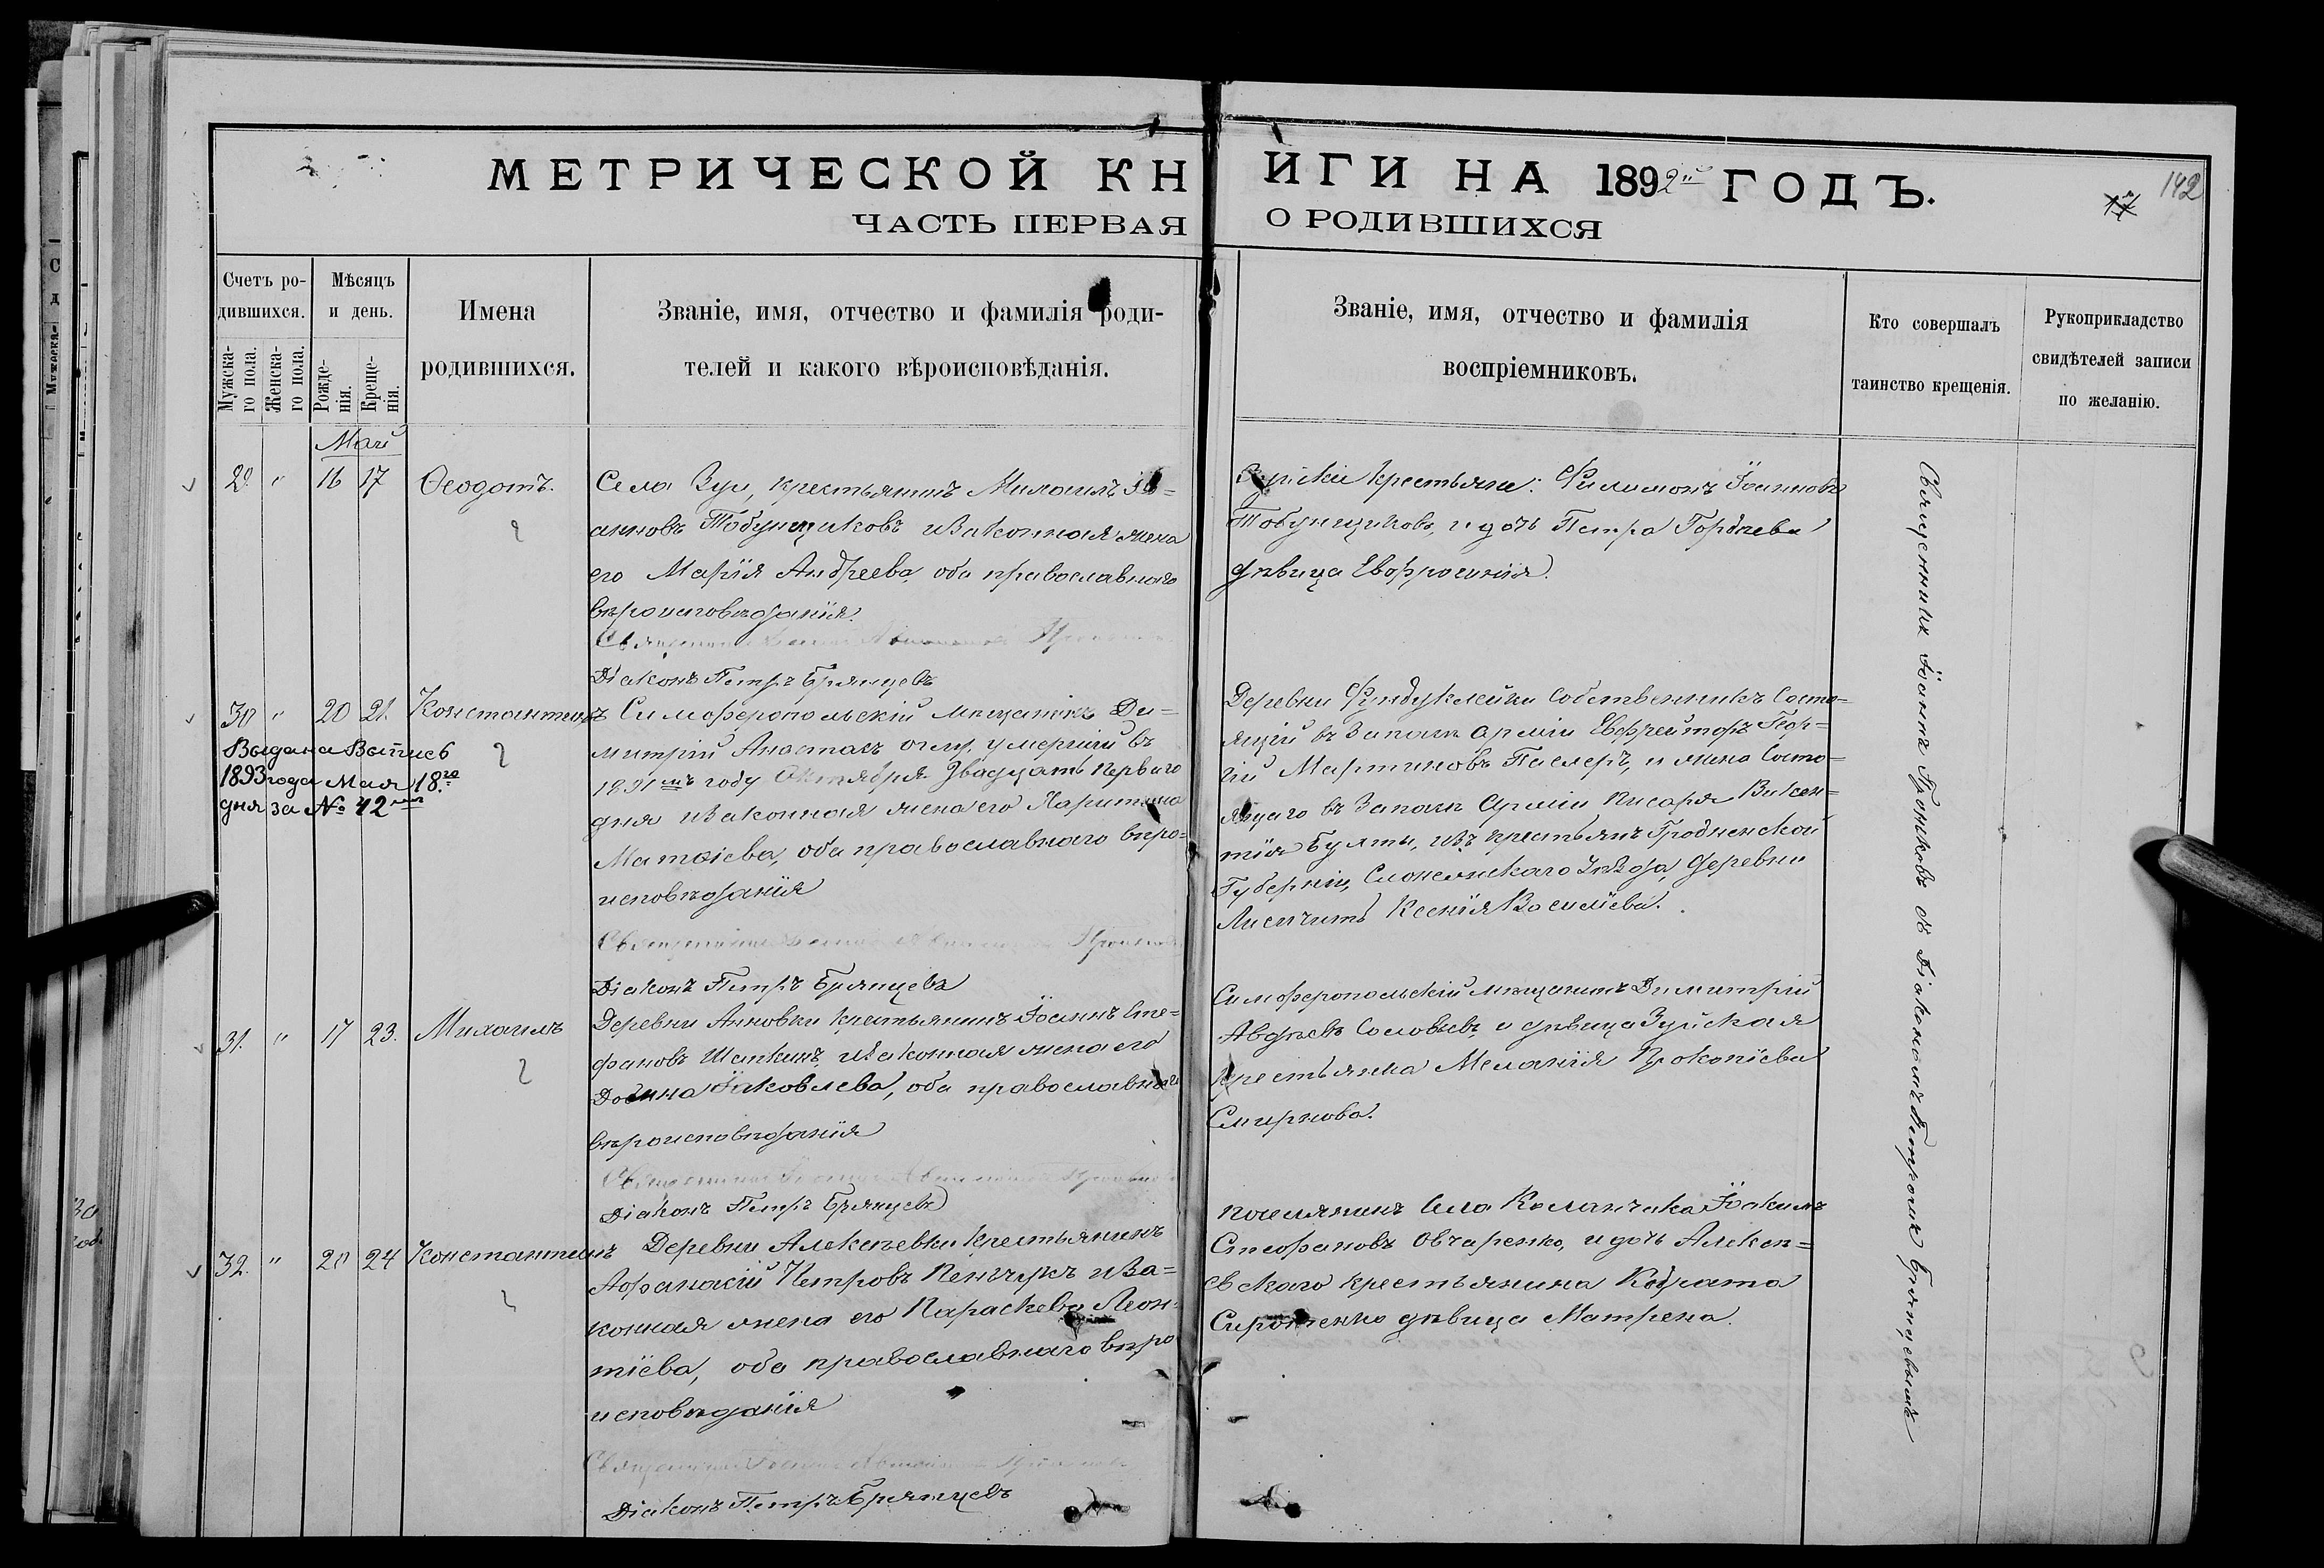 МЕТРИЧЕСКОЙ КНИГИ НА 1892й ГОДЪ.
142
ЧАСТЬ ПЕРВАЯ О РОДИВШИХСЯ
Счетъ ро-
дившихся.
Мужска-
го пола.
Женска-
го пола.
Мѣсяцъ
и день.
Рожде-
нія.
Креще-
нія.
Имена
родившихся.
Званіе, имя, отчество и фамилія роди-
телей и какого вѣроисповѣданія.
Званіе, имя, отчество и фамилія
воспріемниковъ.
Кто совершалъ
таинство крещенія.
Рукоприкладство
свидѣтелей записи
по желанію.
Май
29. " 16 17 Ѳеодотъ.
Села Зуи, крестьянинъ Михаилъ Іо=
анновъ Табунщиковъ и законная жена
его Марія Андреева, оба православнаго
вѣроисповѣданія.
Діаконъ Петръ Брянцевъ
Зуйскіе крестьяне: Филимонъ Іоанновъ
Табунщиковъ, и дочь Петра Гордѣева
дѣвица Евфросинія.
30 " 20 21. Константинъ
Выдана Выпись
1893 года Мая 18го
дня за № 42
Симферопольскій мѣщанинъ Ди=
митрій Анастасъ оглу, умершій въ
1891мъ году Октября двадцать перваго
дня и законная жена его Харитина
Матѳіева, оба православнаго вѣро=
исповѣданія
Діаконъ Петръ Брянцевъ
Деревни Фундуклейки собственникъ состо=
ящій въ запасѣ арміи Ефрейторъ Геор=
гій Мартиновъ Паслеръ, и жена состо=
ящаго въ запасѣ арміи писаря Викен=
тія Булты, изъ крестьянъ Гродненской
Губерніи, Слонимскаго уѣзда, деревни
Ксенія Василіева.
31. " 17 23. Михаилъ
Деревни Анновки крестьянинъ Іоаннъ Сте=
фановъ Шапкинъ, и законная жена его
Домна Іаковлева, оба православнаго
вѣроисповѣданія
Діаконъ Петръ Брянцевъ
Симферопольскій мѣщанинъ Димитрій
Авдѣевъ Соловьевъ, и дѣвица Зуйская
крестьянка Меланія Прокопіева
Смирнова.
32. " 20 24 Константинъ
Деревни Алексѣевки крестьянинъ
Афанасій Петровъ Пенчукъ и за=
конная жена его Параскева Леон=
тіева, оба православнаго вѣро
исповѣданія
Діаконъ Петръ Брянцевъ
поселянинъ села Каланчака Іоакимъ
Стефановъ Овчаренко, и дочь Алексѣ=
евскаго крестьянина Кодрата
Сиротенко дѣвица Матрена.
Священникъ Іоаннъ съ Діакономъ Петромъ Брянцевымъ